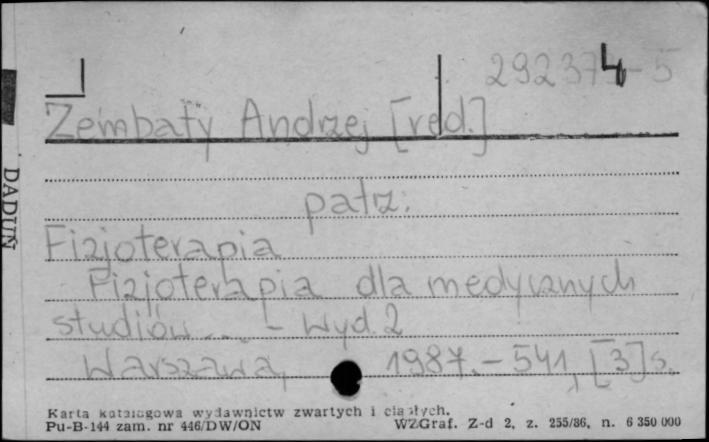 292374-5
Zembaty Andrzej [red.]
patrz:
Fizjoterapia
Fizjoterapia dla medycznych
studiów ... - Wyd. 2
Warszawa, 1987. - 541, [3] s.
DADUŃ
Karta katalogowa wydawnictw zwartych i ciągłych.
Pu-B-144 zam. nr 446/DW/ON WZGraf. Z-d 2, z. 255/86, n. 6 350 000